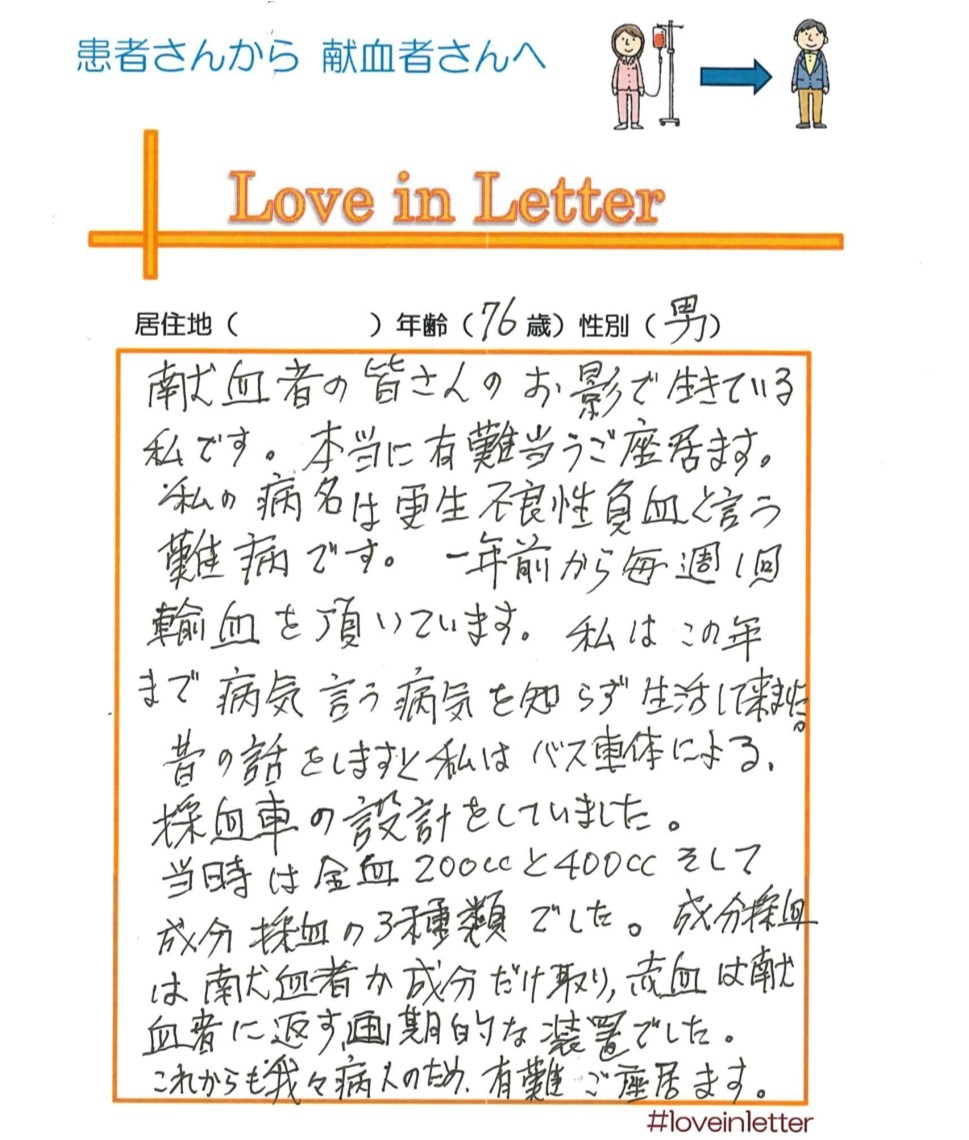 患者さんから 献血者さんへ
Love in Letter
居住地（　　　　　）年齢（76歳）性別（男）
献血者の皆さんのお影で生きている
私です。本当に有難当うご座居ます。
私の病名は更生不良性負血と言う
難病です。一年前から毎週1回
輸血を頂いています。私はこの年
まで病気言う病気を知らず生活して来ました。
昔の話をしますと私はバス車体による、
採血車の設計をしていました。
当時は全血200ccと400ccそして
成分採血の3種類でした。成分採血
は献血者か成分だけ取り,赤血は献
血者に返す,画期的な装置でした。
これからも我々病人のため、有難ご座居ます。
#loveinletter